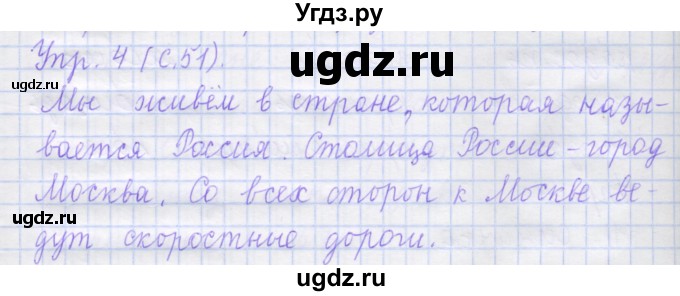 Угдз.ру
Упр. 4 (с.51).
ugdz.ru
ugdz.ru
ugdz.ru
Мы живём в стране, которая назы-
вается Россия. Столица России - город
ugdz.ru
Москва. Со всех сторон к Москве ве-
ugdz.ru
дут скоростные дороги.
ugdz.ru